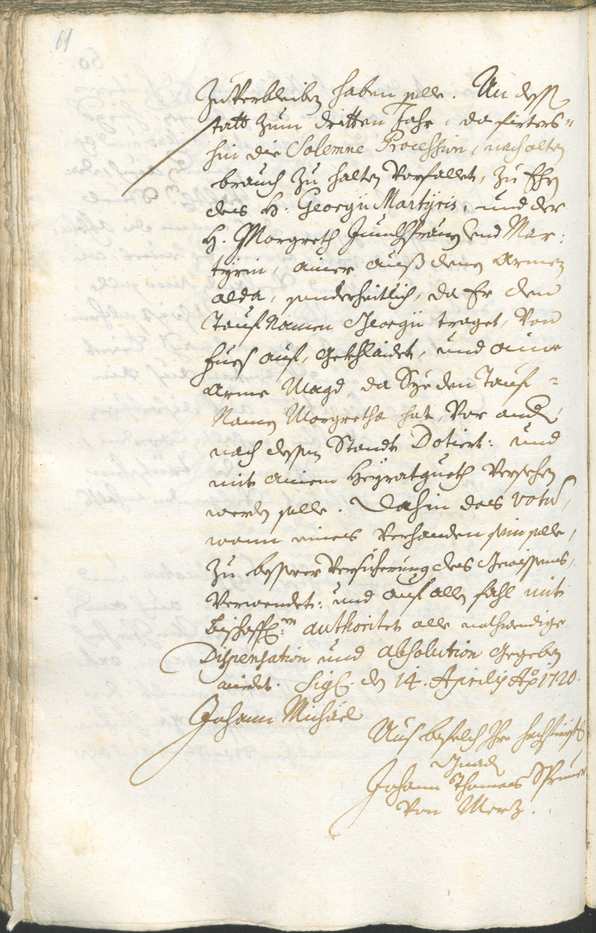 61
Zu Verbleiben haben solle. An dess
statt zum dritten Jahr, da hinters-
hin die Solemne Procession, nach alten
brauch zu halten Vorfallet, zu Ehrn
des H. Georgii Martyris, und der
H. Margreth Junckfrauen und Mar-
tyrin, ainer auß denen Armen
alda, sonderheitlich, da Er den
Tauf Namen Georgii traget, Von
auf, gekhlaidet, und aine
Arme Magd, da Sye den Tauf-
Namen Margretha hat Vor andr
nach dessen Standt Dotiert: und
mit ainem Heyratgueth Versehen
werden solle. Dahin das votum,
wann eines Verhanden sein solle,
zu besserer Versicherung des Gewissens,
Verwendet: und auf allen fahl mit
bischoffl:en authoritet alle nothwendige
Dispensation und absolution gegeben
wirdt. Sigl. den 14. Aprilis Ao 1720.
Johann Michael
Aus befelch Ihr hochfürstl
Gnad
Johann Thomas
Von Merz.